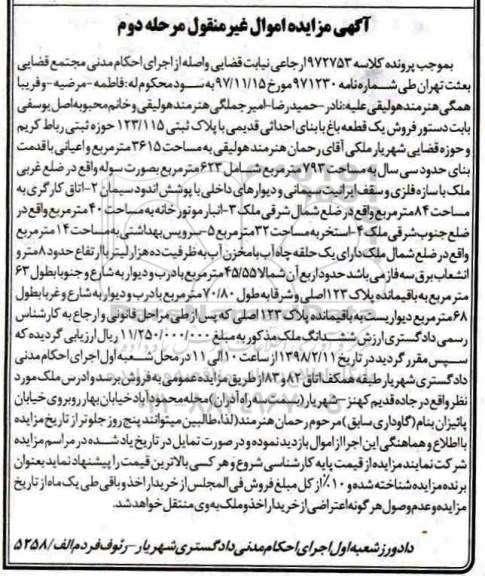 آگهی مزایده اموال غیر منقول مرحله دوم
بموجب پرونده کلاسه ۹۷۲۷۵۳ ارجاعی نیابت قضایی واصله از اجرای احکام مدنی مجتمع قضایی
بعثت تهران طی شماره نامه ۹۷۱۲۳۰ مورخ ۹۷/۱۱/۱۵ به سود محکوم له: فاطمه - مرضیه - وفریبا
همگی هنرمند هولیقی علیه: نادر - حمیدرضا - امیر جملگی هنرمند هولیقی و خانم محبوبه اصل یوسفی
بابت دستور فروش یک قطعه باغ با بنای احداثی قدیمی با پلاک ثبتی ۱۲۳/۱۱۵ حوزه ثبتی رباط کریم
و حوزه قضایی شهریار ملکی آقای رحمان هنرمند هولیقی به مساحت ۳۶۱۵ مترمربع و اعیانی با قدمت
بنای حدود سی سال به مساحت ۷۹۳ مترمربع شامل ۶۲۳ مترمربع بصورت سوله واقع در ضلع غربی
ملک با سازه فلزی و سقف ایرانیت سیمانی و دیوارهای داخلی با پوشش اندود سیمان ۲- اتاق کارگری به
مساحت ۸۴ مترمربع واقع در ضلع شمال شرقی ملک ۳- انبار موتورخانه به مساحت ۴۰ مترمربع واقع در
ضلع جنوب شرقی ملک ۴- استخر به مساحت ۳۲ مترمربع ۵- سرویس بهداشتی به مساحت ۱۴ مترمربع
واقع در ضلع شمال ملک دارای یک حلقه چاه آب با مخزن آب به ظرفیت ده هزار لیتر با ارتفاع حدود ۸ متر و
انشعاب برق سه فاز می باشد حدود اربع آن شمالا ۴۵/۵۵ مترمربع با درب و دیوار به شارع و جنوبا بطول ۶۳
متر مربع به باقیمانده پلاک ۱۲۳ اصلی و شرقا به طول ۷۰/۸۰ مترمربع با درب و دیوار به شارع و غربا بطول
۶۸ مترمربع دیواریست به باقیمانده پلاک ۱۲۳ اصلی که پس از طی مراحل قانونی و ارجاع به کارشناس
رسمی دادگستری ارزش ششدانگ ملک مذکور به مبلغ ۱۱/۲۵۰/۰۰۰/۰۰۰ ریال ارزیابی گردیده که
سپس مقرر گردید در تاریخ ۱۳۹۸/۲/۱۱ از ساعت ۱۰ الی ۱۱ در محل شعبه اول اجرای احکام مدنی
دادگستری شهریار طبقه همکف اتاق ۸۲ و ۸۳ از طریق مزایده عمومی به فروش برسد و ادرس ملک مورد
نظر واقع در جاده قدیم کهنز - شهریار (بسمت سه راه آدران) محله محمودآباد خیابان بهار روبروی خیابان
پائیزان بنام (گاوداری سابق) مرحوم رحمان هنرمند (لذا، طالبین میتوانند پنج روز جلوتر از تاریخ مزایده
با اطلاع و هماهنگی این اجرا از اموال بازدید نموده و در صورت تمایل در تاریخ یاد شده در مراسم مزایده
شرکت نمایند مزایده از قیمت پایه کارشناسی شروع و هر کسی بالاترین قیمت را پیشنهاد نماید بعنوان
برنده مزایده شناخته شده و ۱۰٪ از کل مبلغ فروش فی المجلس از خریدار اخذ و باقی طی یک ماه از تاریخ
مزایده و عدم وصول هر گونه اعتراضی از خریدار اخذ و ملک به وی منتقل خواهد شد.
دادورز شعبه اول اجرای احکام مدنی دادگستری شهریار - رئوف فرد م الف/ ۵۲۵۸